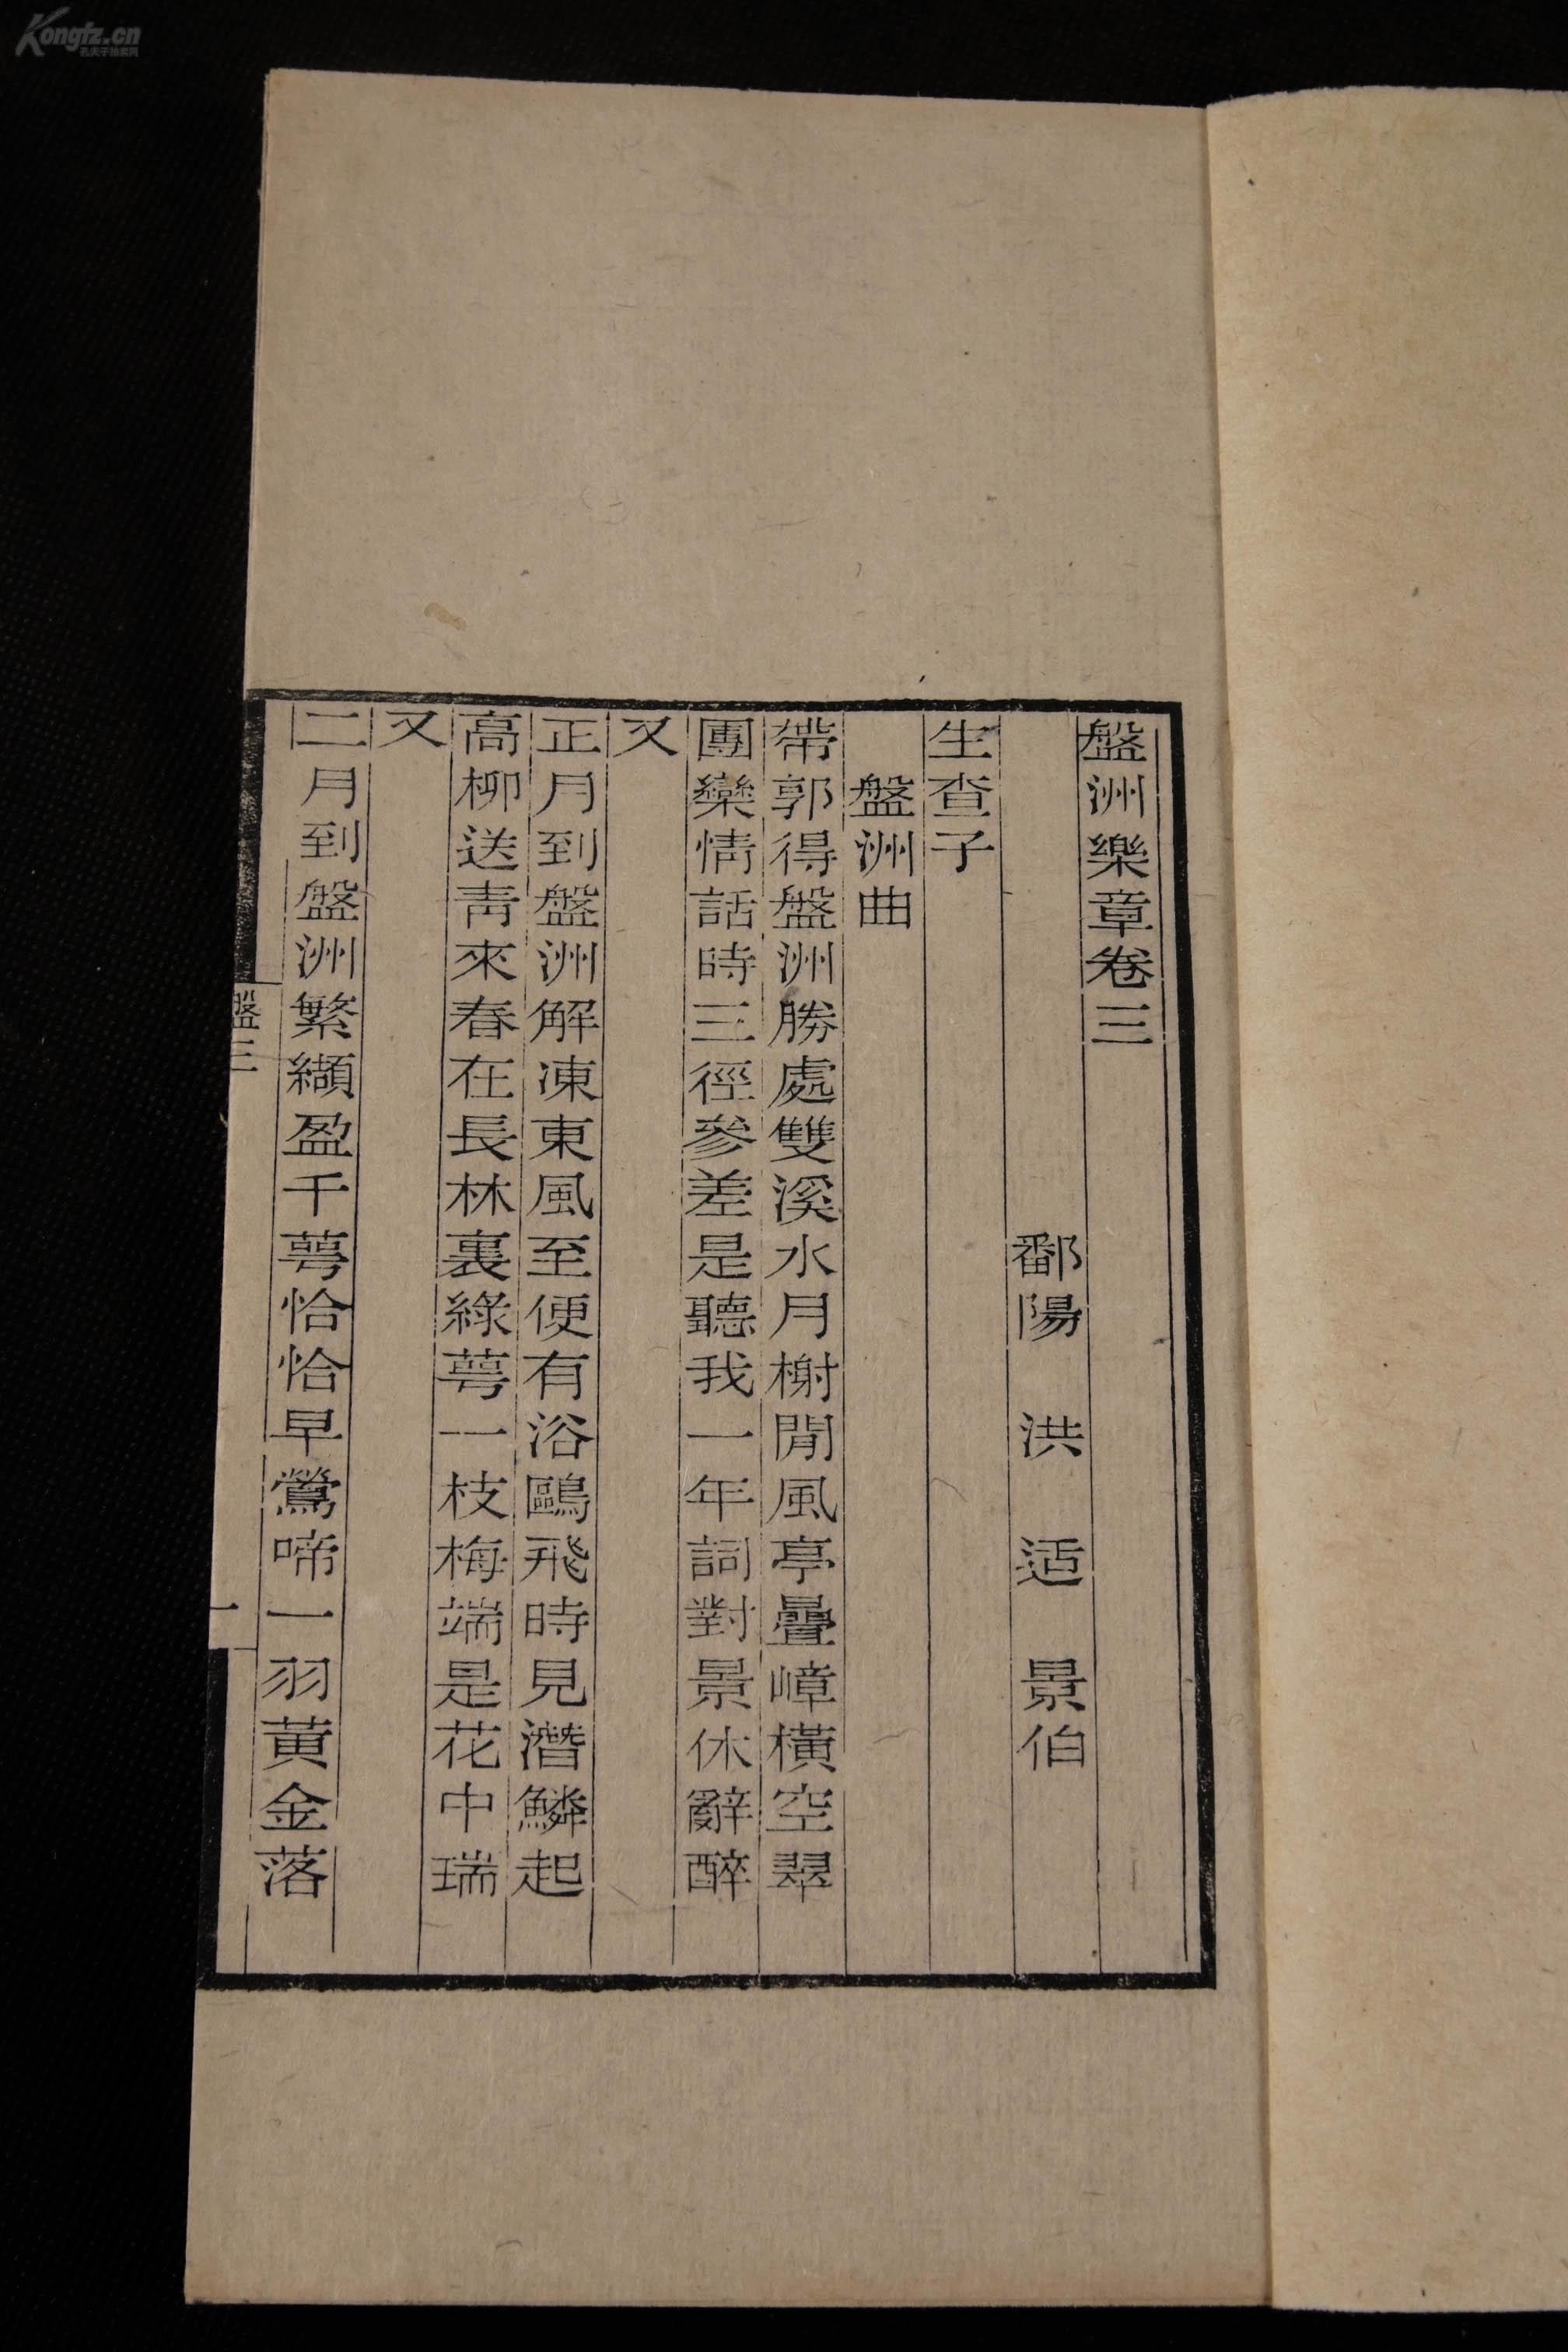 盤洲樂章卷三
鄱陽 洪 适 景伯
生查子
盤洲曲
帶郭得盤洲勝處雙溪水月榭閒風亭疊嶂橫空翠
團欒情話時三徑參差是聽我一年詞對景休辭醉
又
正月到盤洲解凍東風至便有浴鷗飛時見潛鱗起
高柳送靑來春在長林裏綠萼一枝梅端是花中瑞
又
二月到盤洲繁纈盈千萼恰恰早鶯啼一羽黃金落
盤三
一
Kongfz.cn
孔夫子拍卖网